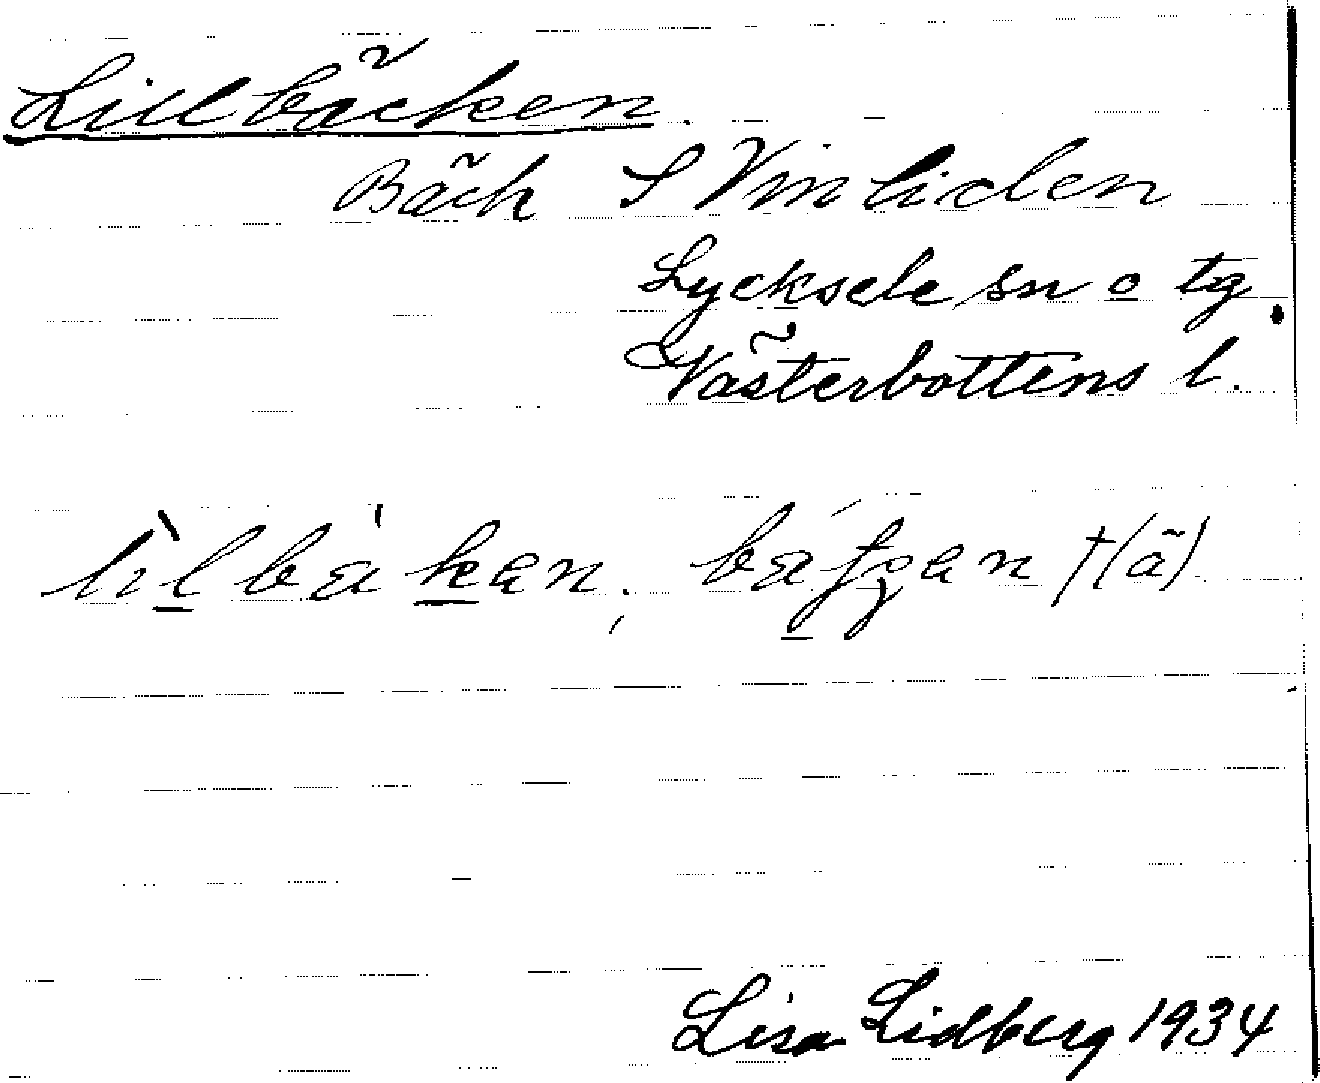 Lillbäcken.
Bäck S Vinliden
Lycksele sn o tg.
Västerbottens l.
Lisa Lidberg 1934